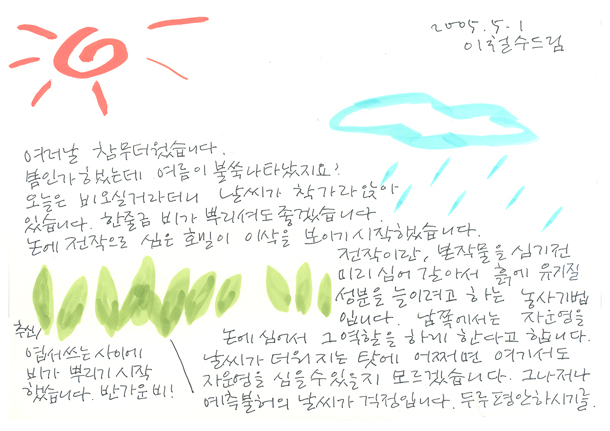 2005.5.1
이철수드림
여러날 참 무더웠습니다.
봄인가 하였는데 여름이 불쑥 나타났지요?
오늘은 비오실거라더니 날씨가 착 가라앉아
있습니다. 한줄금 비가 뿌리셔도 좋겠습니다.
논에 전작으로 심은 호밀이 이삭을 보이기 시작했습니다.
전작이란, 본작물을 심기전
미리 심어 갈아서 흙에 유기질
성분을 늘이려고 하는 농사기법
입니다. 남쪽에서는 자운영을
논에 심어서 그 역할을 하게 한다고 합니다.
날씨가 더워지는 탓에 어쩌면 여기서도
자운영을 심을 수 있을지 모르겠습니다. 그나저나
예측불허의 날씨가 걱정입니다. 두루 평안하시기를.
추신)
엽서쓰는 사이에
비가 뿌리기 시작
했습니다. 반가운 비!